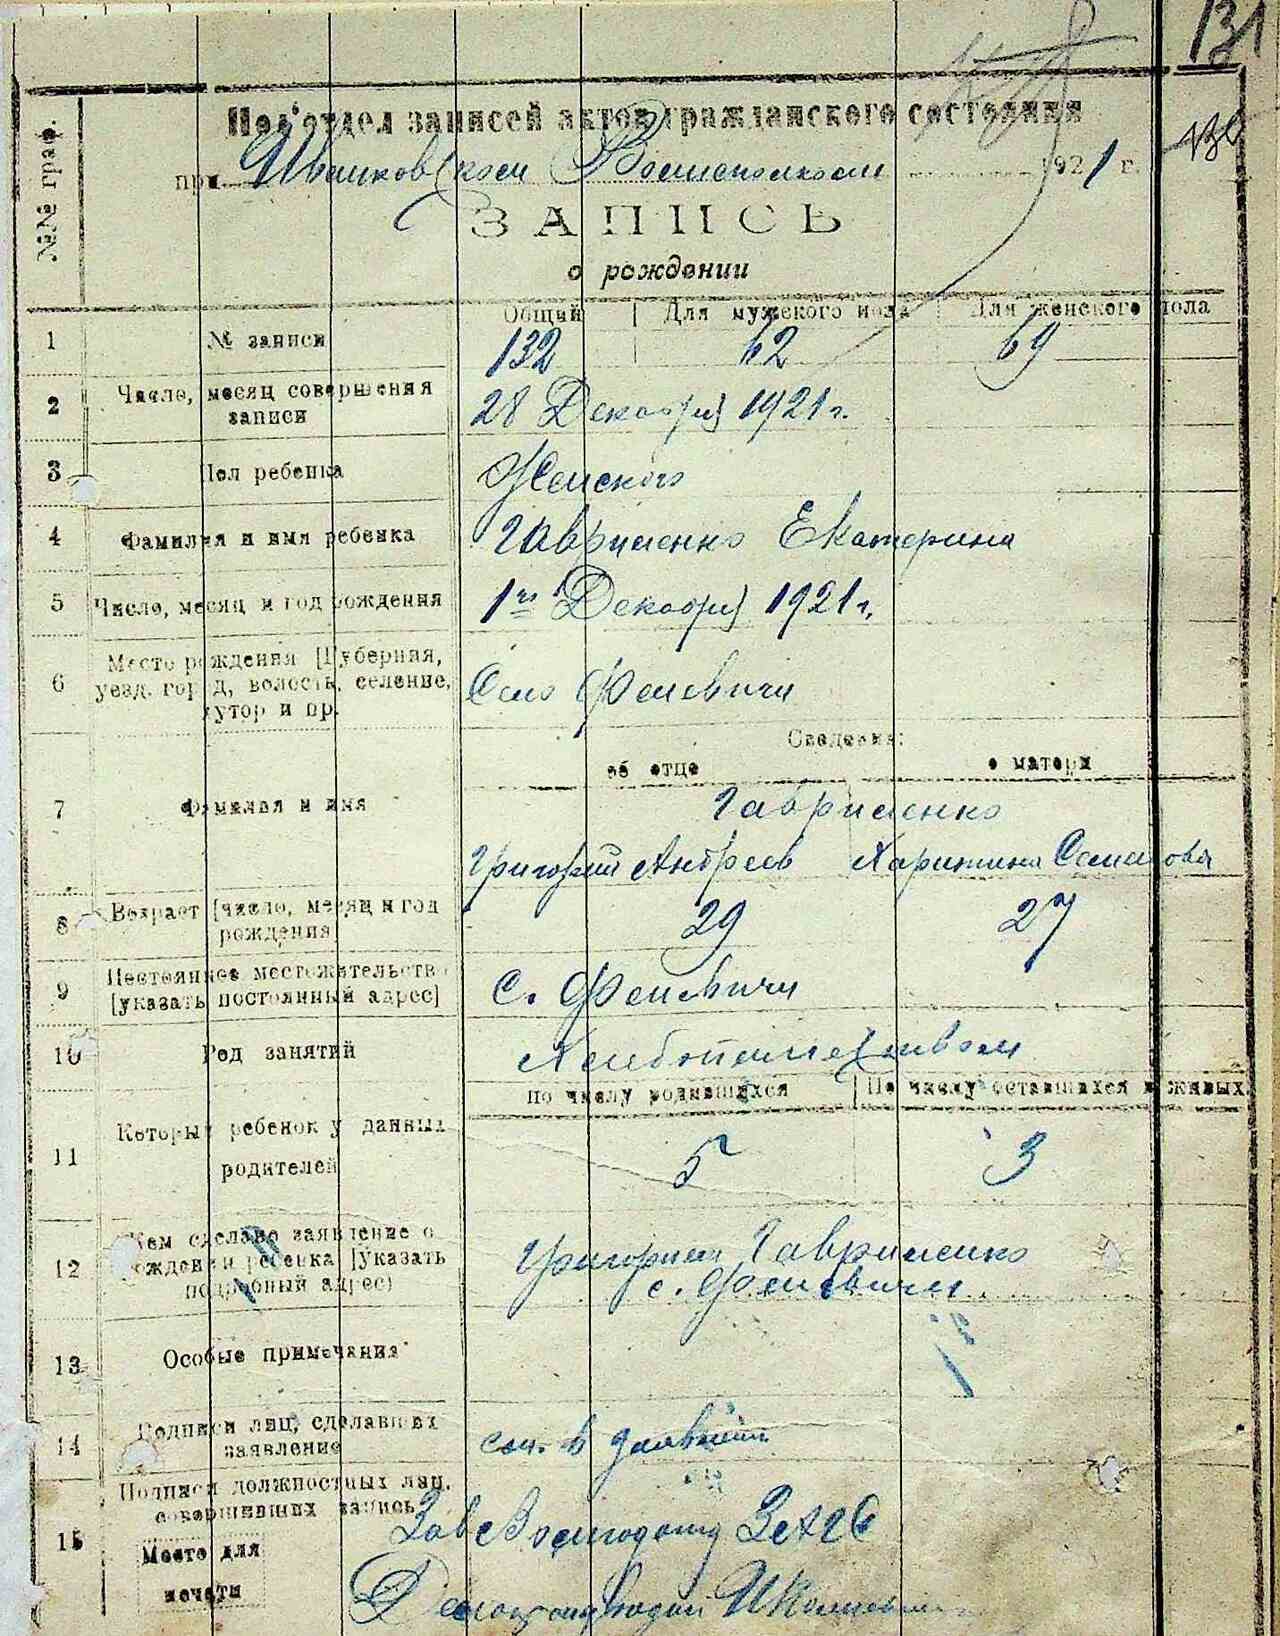 131
Под'отдел записей актов гражданского состояния
при Иванковском Волисполкоме 1921 г.
130
ЗАПИСЬ
о рождении
№№ граф.
Общий Для мужского пола Для женского пола
1 № записи 132 62 69
2 Число, месяц совершения записи 28 Декабря 1921 г.
3 Пол ребенка Женского
4 Фамилия и имя ребенка Гавриленко Екатерина
5 Число, месяц и год рождения 1го Декабря 1921 г.
6 Место рождения [Губерния, уезд, город, волость, селение, хутор и пр. Село Феневичи
Сведения:
об отце о матери
7 Фамилия и имя Гавриленко
Григорий Андреев Харитина Семенова
8 Возраст [число, месяц и год рождения] 29 27
9 Постоянное местожительство [указать постоянный адрес] с. Феневичи
10 Род занятий Хлебопашеством
по числу родившихся По числу оставшихся в живых
11 Который ребенок у данных родителей 5 3
12 Кем сделано заявление о рождении ребенка [Указать подробный адрес) Григорием Гавриленко
с. Феневичи
13 Особые примечания
14 Подписи лиц, сделавших заявление
15 Подписи должностных лиц, совершивших запись
Место для
печати